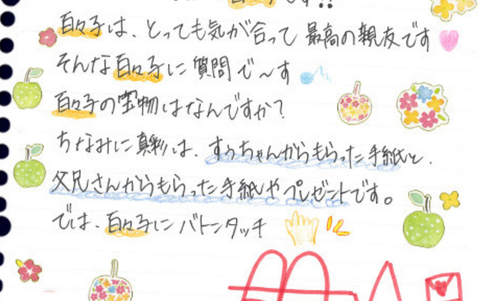 百々子は、とっても気が合って最高の親友です
そんな百々子に質問で〜す
百々子の宝物はなんですか?
ちなみに真彩は、すっちゃんからもらった手紙と、
父兄さんからもらった手紙やプレゼントです。
では、百々子にバトンタッチ